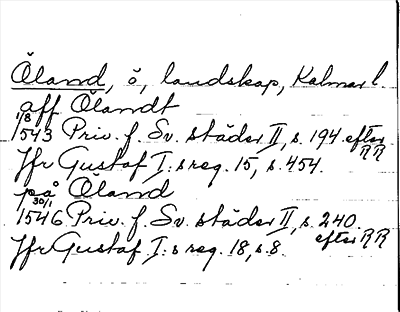 Öland, ö, landskap, Kalmar l.
aff Ölandt
1/8
1543 Priv. f. Sv. städer II, s. 194 efter RR
Jfr Gustaf I:s reg. 15, s. 454.
på Öland
30/1
1546 Priv. f. Sv. städer II, s. 240. efter RR
Jfr Gustaf I:s reg. 18, s. 8.